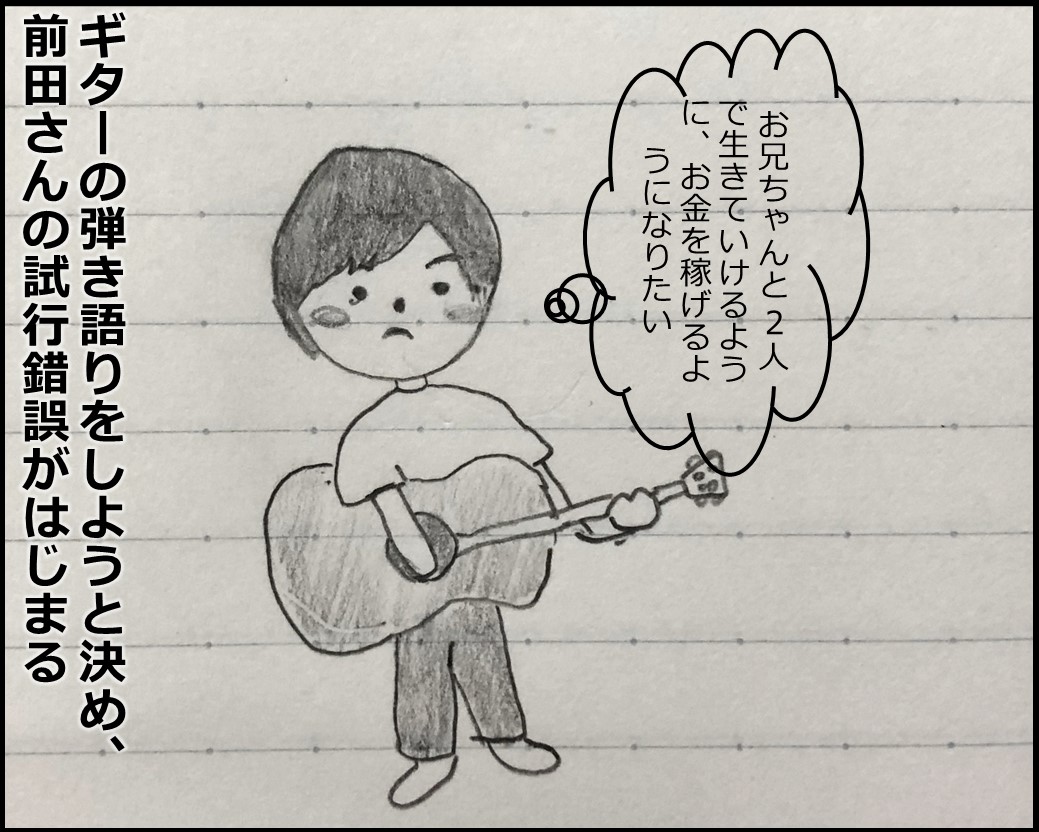 お兄ちゃんと２人
で生きていけるよう
に、お金を稼げるよ
うになりたい
ギターの弾き語りをしようと決め、
前田さんの試行錯誤がはじまる